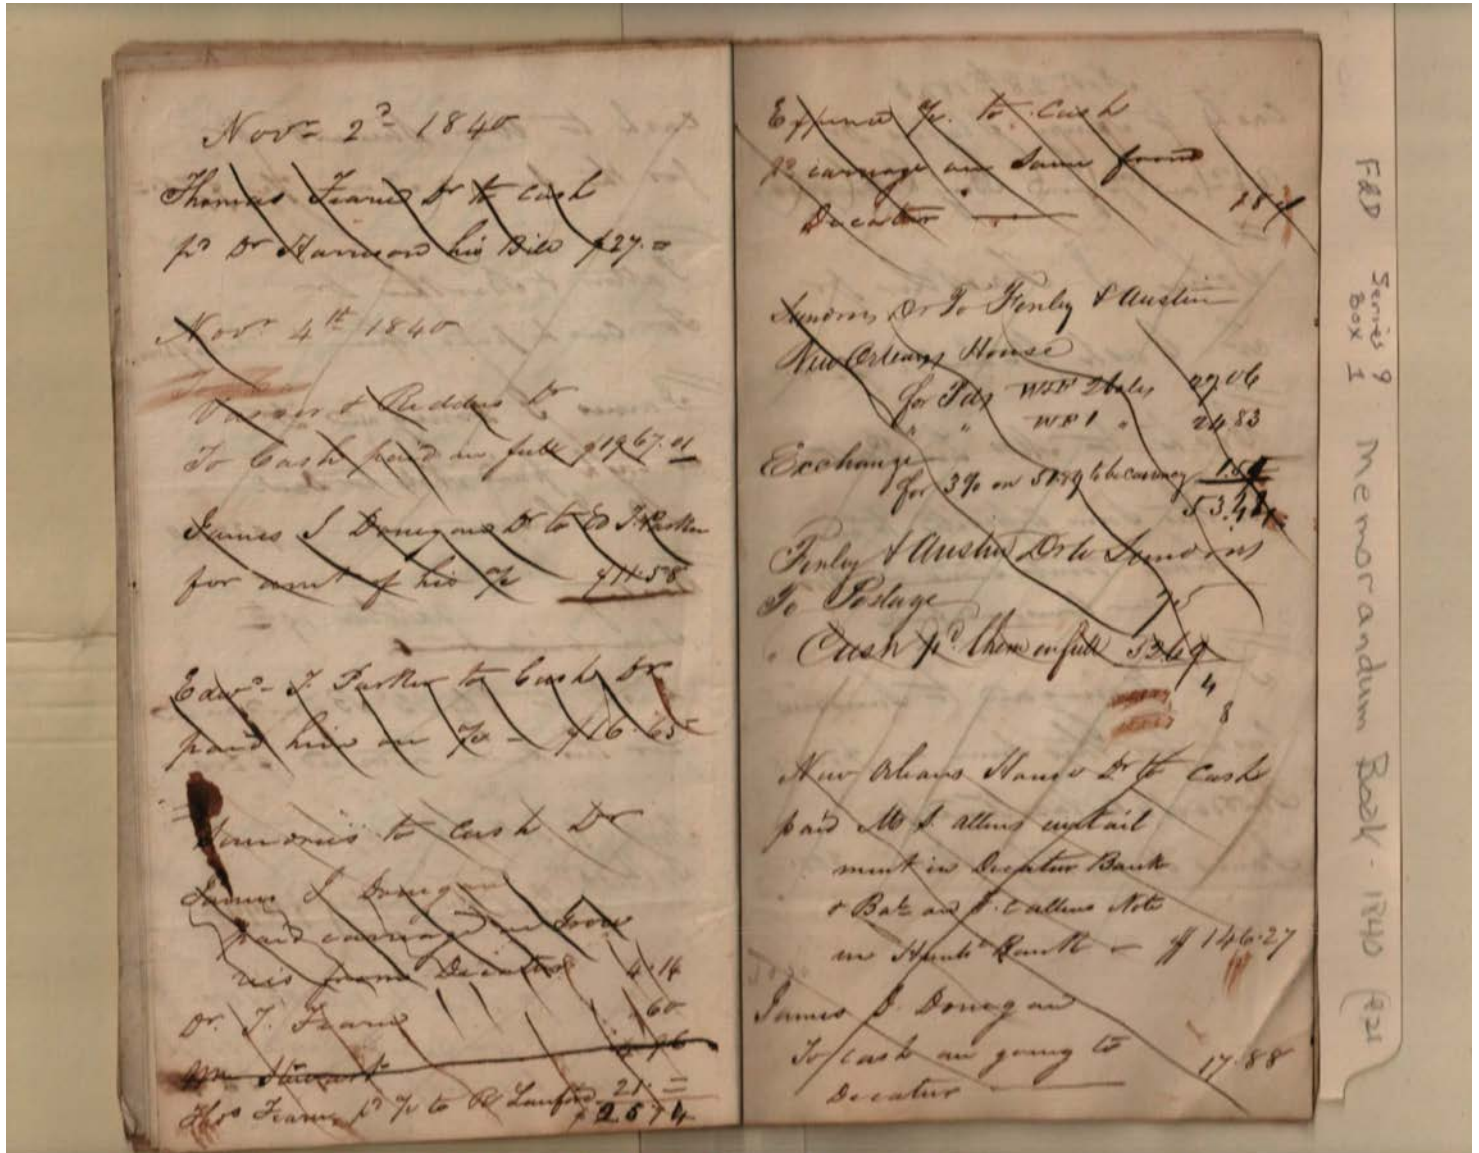 Novr 2d 1840
Thomas Fearn Dr to Cash
pd Dr Harrison his Bill $27.=
Novr 4th 1840
& Dr
To Cash paid in full $1967.01
James J Donegan Dr to Ed T. Parker
for amt of his a/c $11.58
Edwd T. Parker to Cash Dr
paid him on a/c - $16.65
Sundries to Cash Dr
James J Donegan
paid carriage on Groce
ries from Decatur 4.14
Dr. T. Fearn .60
Wm Stewart
Thos Fearn, pd a/c to Lanford 21.=
$2574
Expense a/c. to Cash
pd carriage on Same from
Decatur
Sundries Dr To Fenley & Austin
New Orleans House
for WBP 2 bales 27.06
" " WB 1 " 24.83
Exchange
for 3% on 51.89 to be currency 1.55
53.44
Fenley & Austin Dr to Sundries
To Postage 75
" Cash pd them in full 5269
4
8
New Orleans House Dr to Cash
paid M J. Allens curtail
ment in Decatur Bank
& Balc on J. C Allens Note
in Hunts Bank - $146.27
James J. Donegan
To Cash on going to
Decatur 17.88
F&D Series 9
Box 1
Memorandum Book - 1840